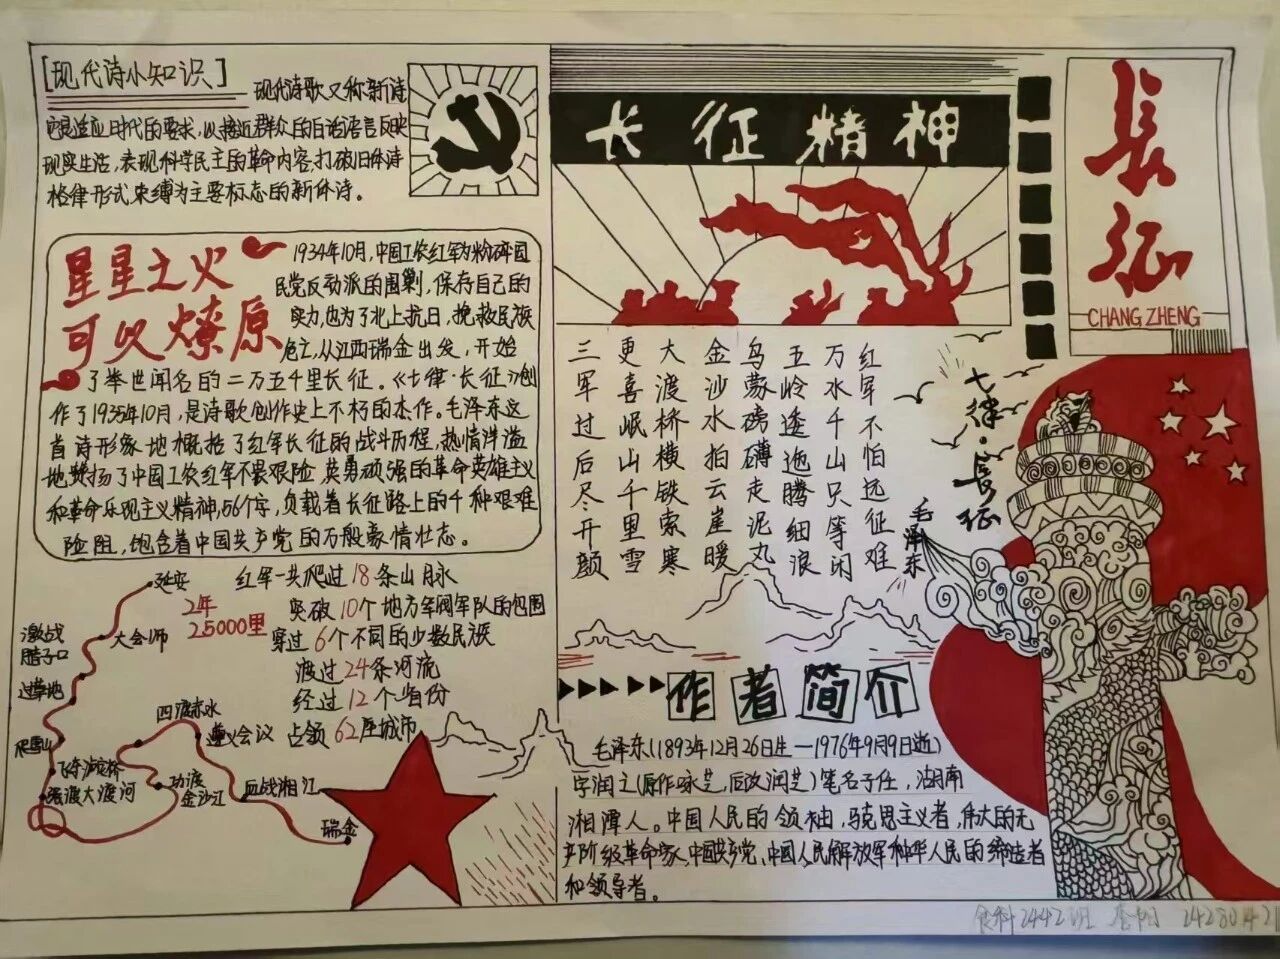 [现代诗小知识]
现代诗歌又称新诗
它是适应时代的要求,以接近群众的白话语言反映
现实生活,表现科学民主的革命内容,打破旧体诗
格律形式束缚为主要标志的新体诗。
星星之火
可以燎原
1934年10月,中国工农红军为粉碎国
民党反动派的围剿,保存自己的
实力,也为了北上抗日,挽救民族
危亡,从江西瑞金出发,开始
了举世闻名的二万五千里长征。《七律·长征》创
作了1935年10月,是诗歌创作史上不朽的杰作。毛泽东这
首诗形象地概括了红军长征的战斗历程,热情洋溢
地赞扬了中国工农红军不畏艰险,英勇顽强的革命英雄主义
和革命乐观主义精神,56个字,负载着长征路上的千种艰难
险阻,饱含着中国共产党的万般豪情壮志。
延安
大会师
激战
腊子口
过草地
爬雪山
飞夺泸定桥
强渡大渡河
四渡赤水
遵义会议
巧渡
金沙江
血战湘江
瑞金
2年
25000里
红军一共爬过18条山脉
突破10个地方军阀军队的包围
穿过6个不同的少数民族
渡过24条河流
经过12个省份
占领62座城市
长征精神
長征
CHANG ZHENG
七律·長征
毛泽东
红军不怕远征难
万水千山只等闲
五岭逶迤腾细浪
乌蒙磅礴走泥丸
金沙水拍云崖暖
大渡桥横铁索寒
更喜岷山千里雪
三军过后尽开颜
作者简介
毛泽东(1893年12月26日生—1976年9月9日逝)
字润之(原作咏芝,后改润芝)笔名子任,湖南
湘潭人。中国人民的领袖,马克思主义者,伟大的无
产阶级革命家,中国共产党、中国人民解放军和中华人民的缔造者
和领导者。
食科2442班